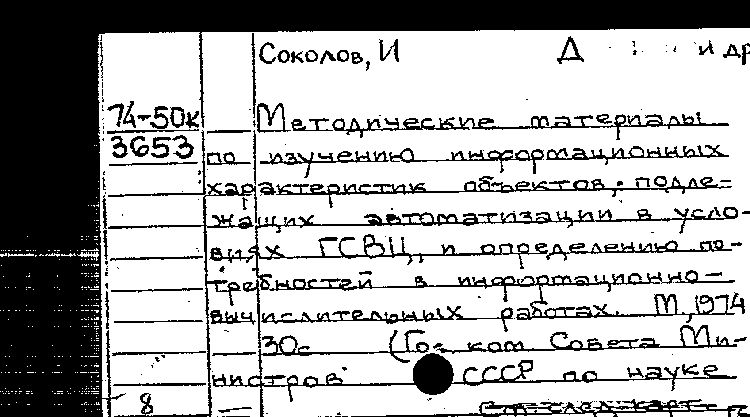 Соколов, И Д и др
74-50к Методические материалы
3653 по изучению информационных
характеристик объектов, подле-
жащих автоматизации в усло-
виях ГСВЦ, и определению по-
требностей в информационно-
вычислительных работах. М, 1974
30с (Гос ком Совета Ми-
нистров СССР по науке
8 См след карт